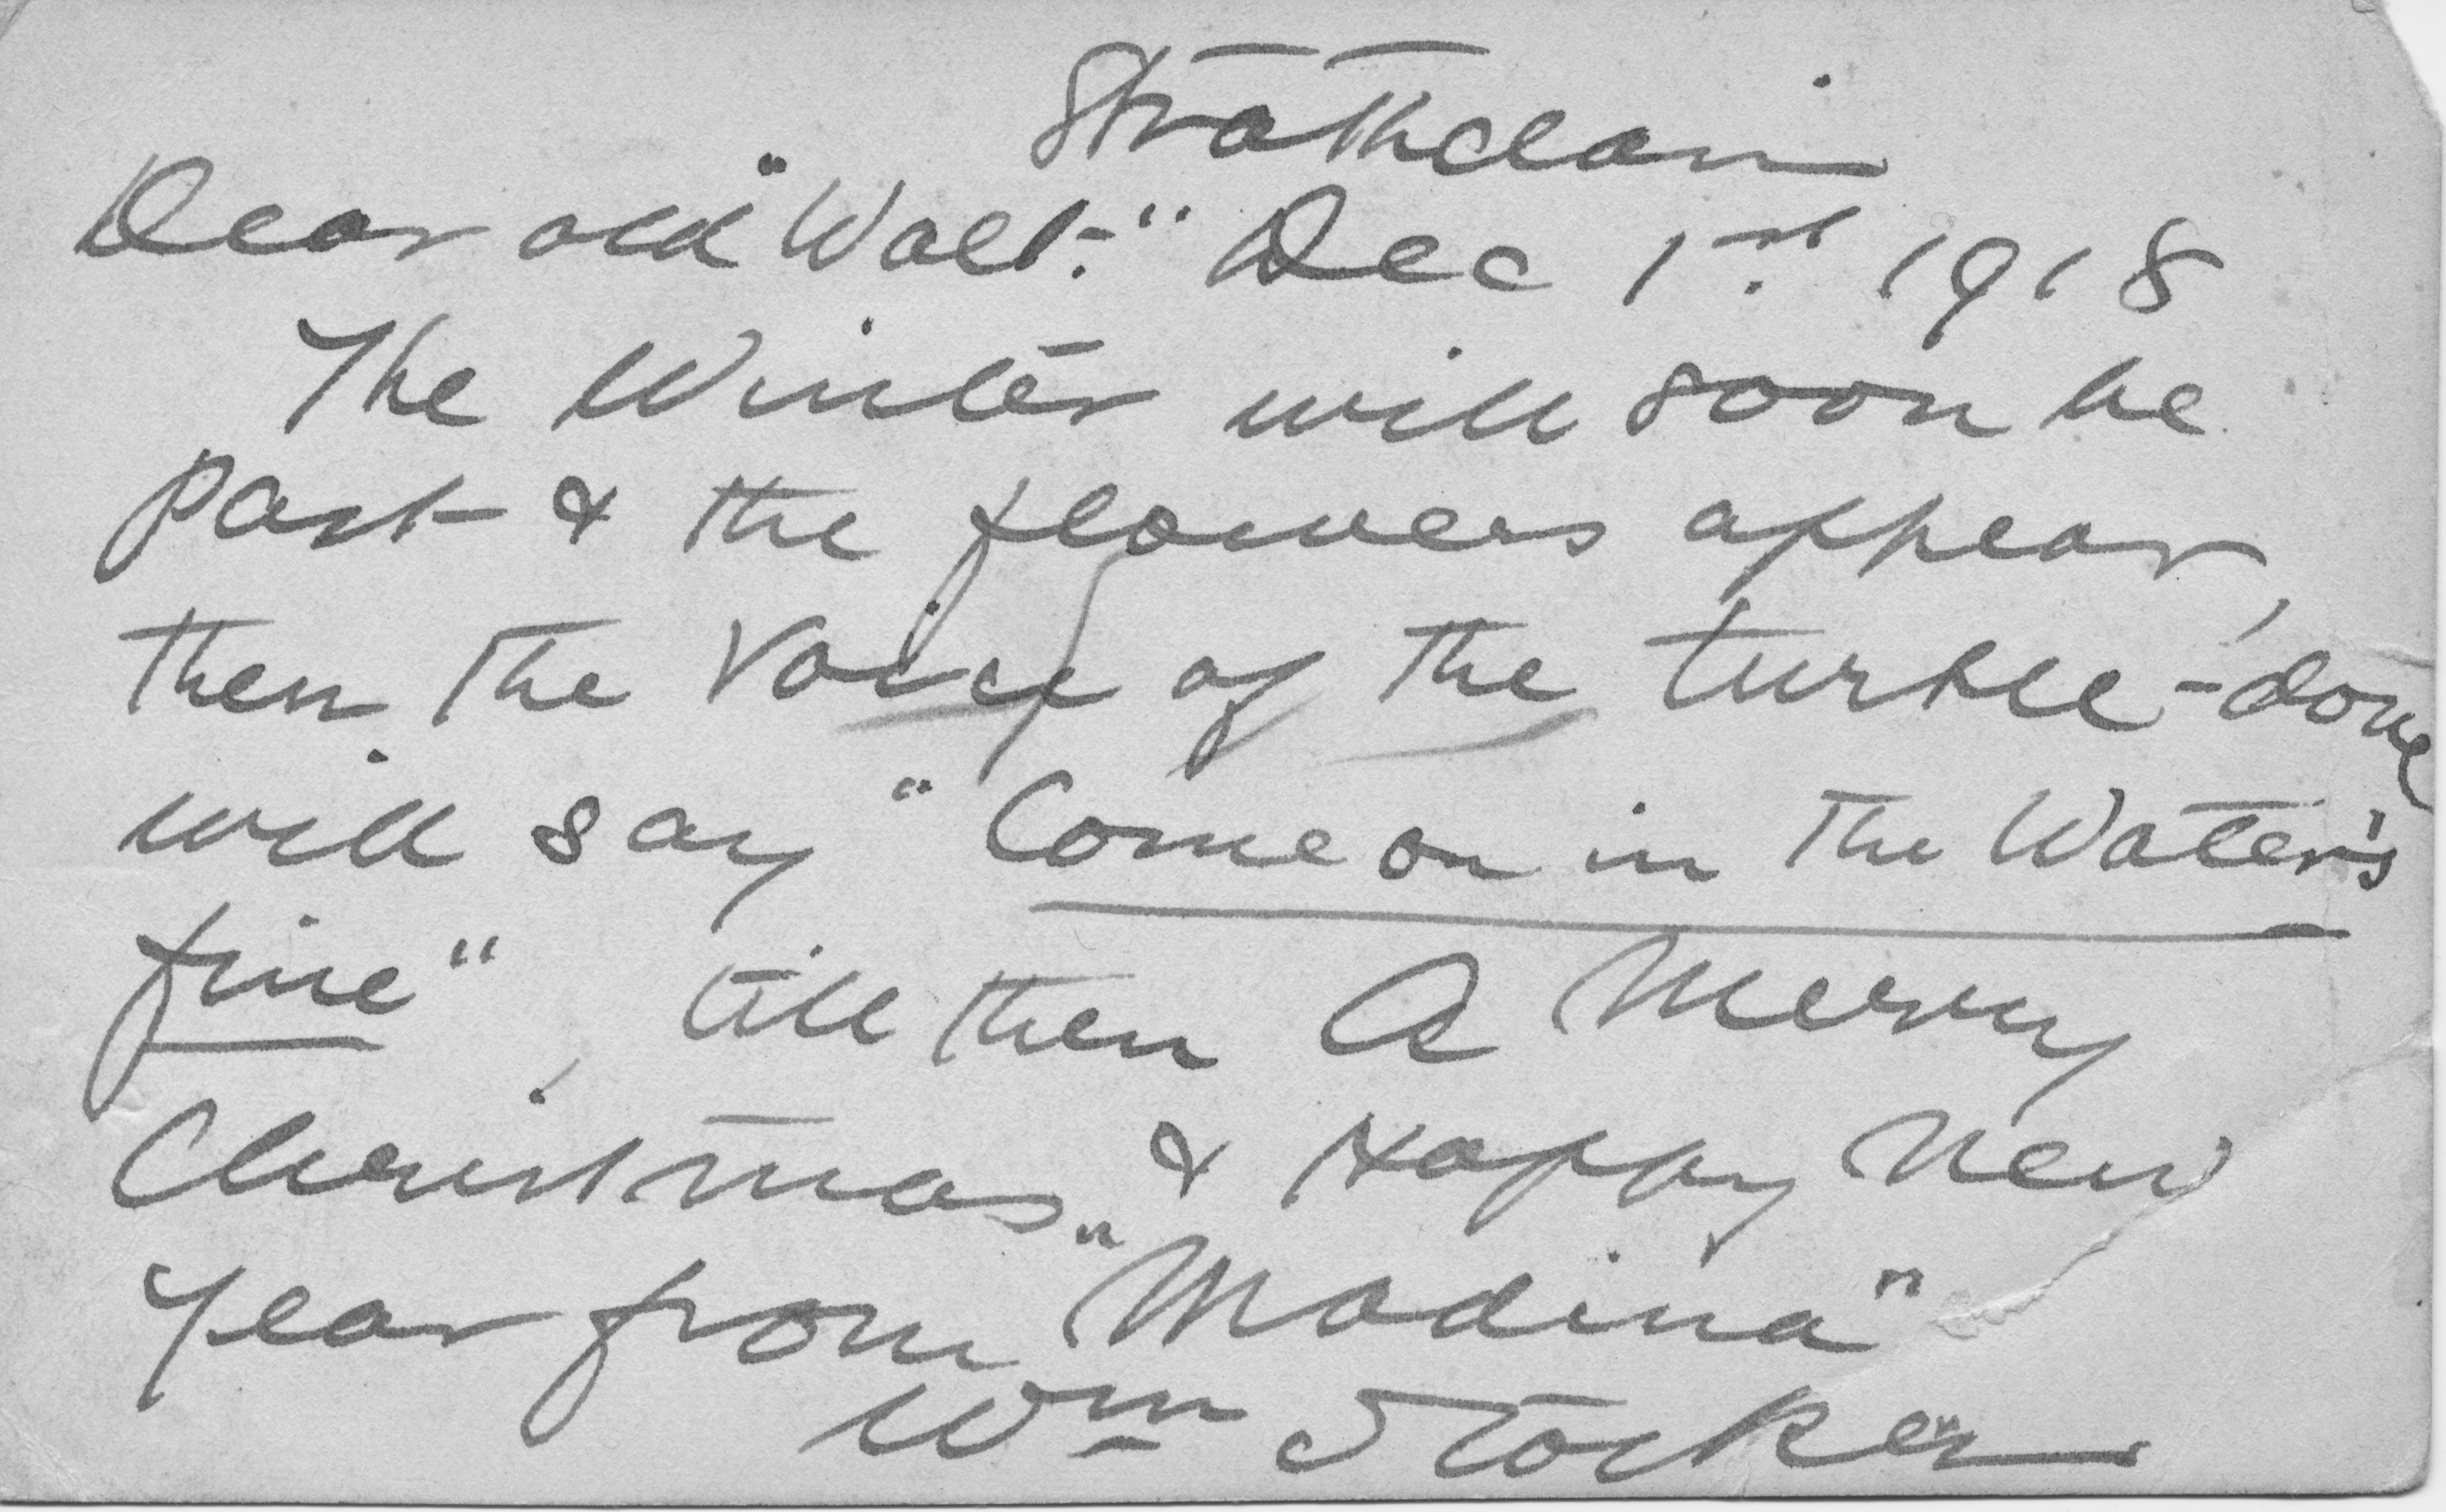 Strathclair
Dear old "Walt." Dec 1st 1918
The Winter will soon be
past & the flowers appear,
then the Voice of the turtle-dove
will say "Come on in the Water's
fine", till then A Merry
Christmas & Happy New
Year from "Modina"
Wm Stocker